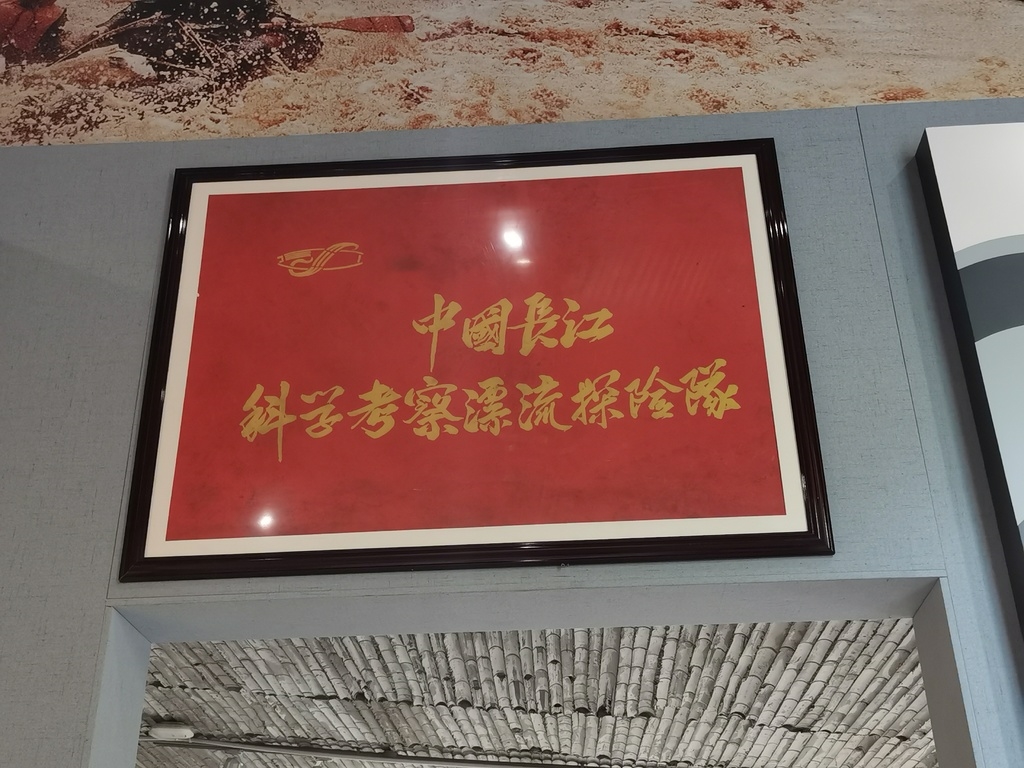 中國長江
科学考察漂流探险隊